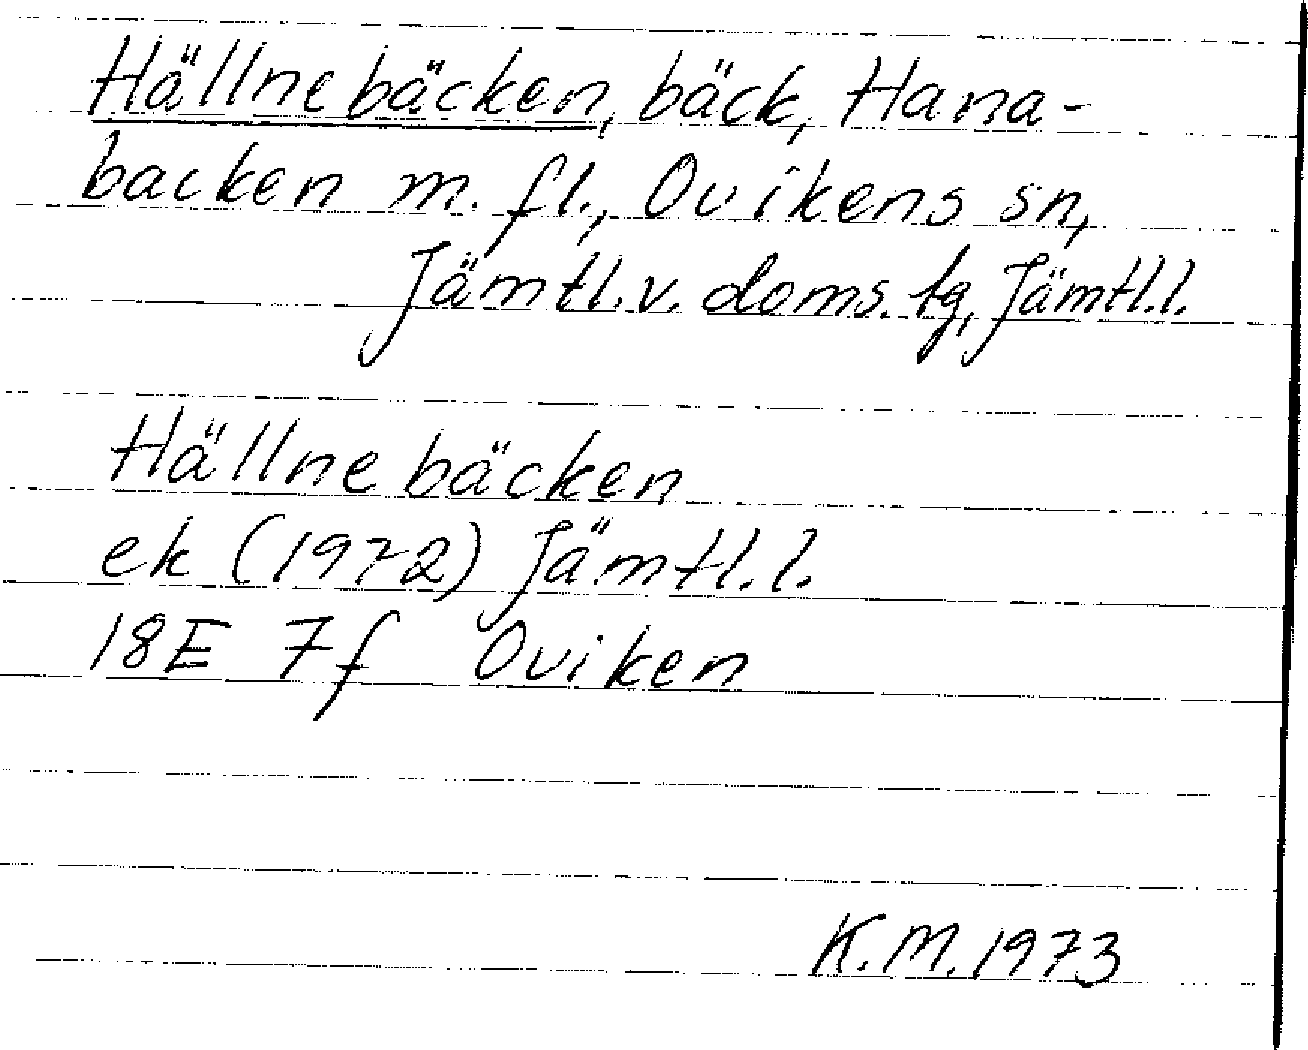 Hällnebäcken, bäck, Hana-
backen m. fl., Ovikens sn,
Jämtl.v. doms. tg, Jämtl.l.
Hällnebäcken
ek (1972) Jämtl.l.
18E 7f Oviken
K.M.1973